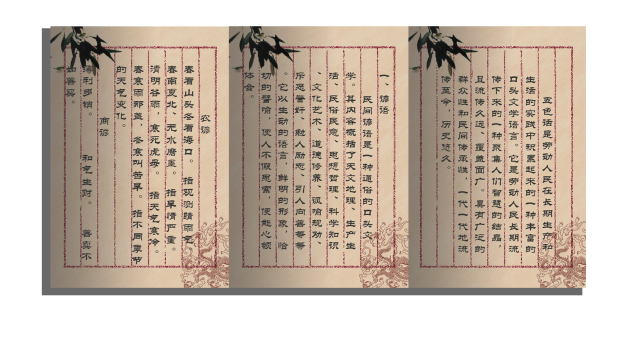 五色话是劳动人民在长期生产和
生活的实践中积累起来的一种丰富的
口头文学语言。它是劳动人民长期流
传下来的一种聚集人们智慧的结晶，
且流传久远、覆盖面广。具有广泛的
群众性和民间传承性，一代一代地流
传至今，历史悠久。
一、谚语
民间谚语是一种通俗的口头文
学。其内容概括了天文地理、生产生
活、民俗民意、思想哲理、科学知识
、文化艺术、道德修养、讽喻规劝、
斥恶誉好、勉人励志、引人向善等等
。它以生动的语言，鲜明的形象，恰
切的譬喻，使人不假思索，便能心领
体会。
农谚
春看山头冬看海口。 指观测晴雨气
春南夏北，无水磨墨。 指旱情严重。
清明谷雨，寒死虎母。 指天气寒冷。
春寒雨那，冬寒叫苦旱。 指不同季节
的天气变化。
商谚
薄利多销。 和气生财。 善卖不
如善买。